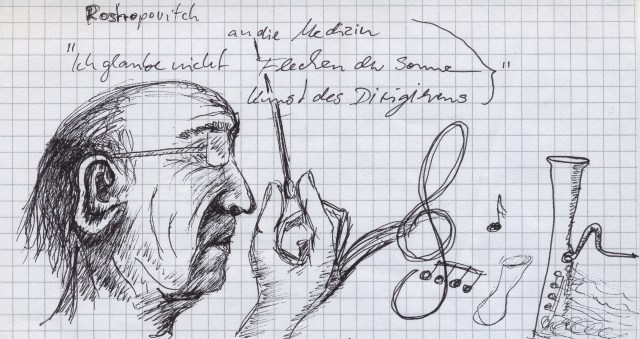 Rostropovitch
an die Medizin
"Ich glaube nicht Flecken der Sonne "
Kunst des Dirigierens